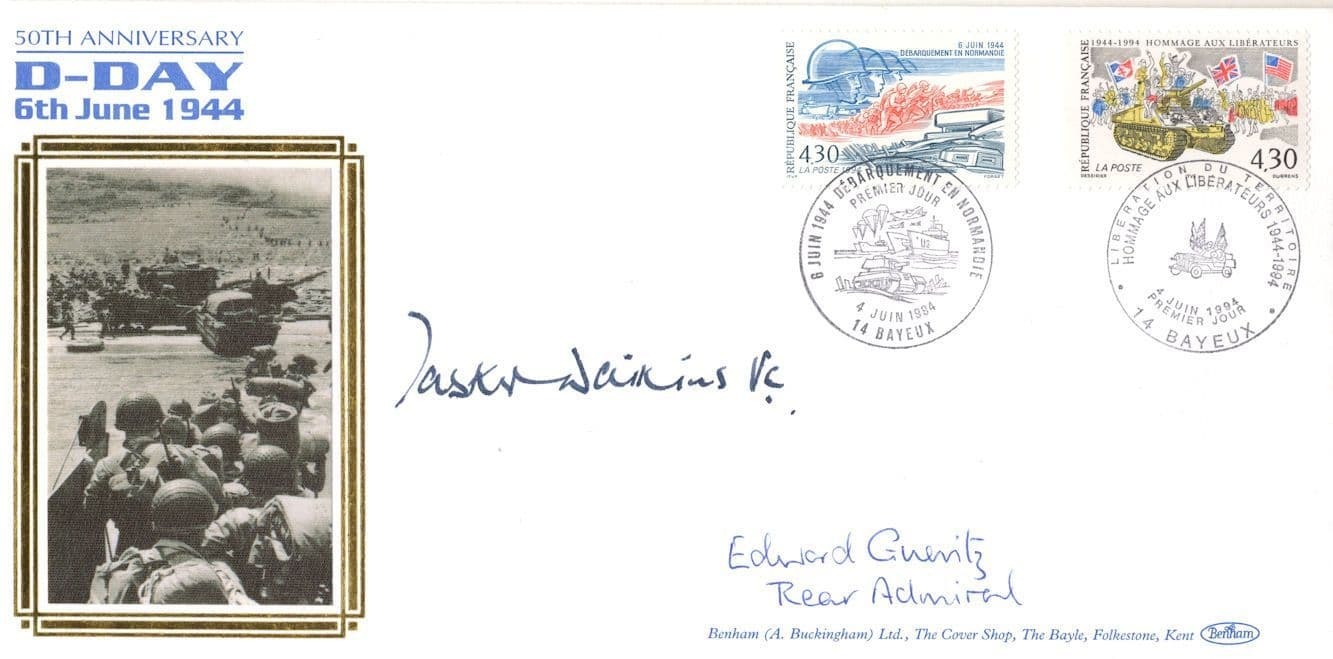 50TH ANNIVERSARY
D-DAY
6th June 1944
RÉPUBLIQUE FRANÇAISE
6 JUIN 1944
DÉBARQUEMENT EN NORMANDIE
4,30
LA POSTE 1994
FORGET
1944-1994 HOMMAGE AUX LIBÉRATEURS
RÉPUBLIQUE FRANÇAISE
LA POSTE
4,30
DESSIRIER
DURRENS
6 JUIN 1944 DÉBARQUEMENT EN NORMANDIE
PREMIER JOUR
4 JUIN 1994
14 BAYEUX
LIBÉRATION DU TERRITOIRE
HOMMAGE AUX LIBÉRATEURS 1944-1994
4 JUIN 1994
PREMIER JOUR
14 BAYEUX
Tasker Watkins VC.
Edward Gueritz
Rear Admiral
Benham (A. Buckingham) Ltd., The Cover Shop, The Bayle, Folkestone, Kent
Benham